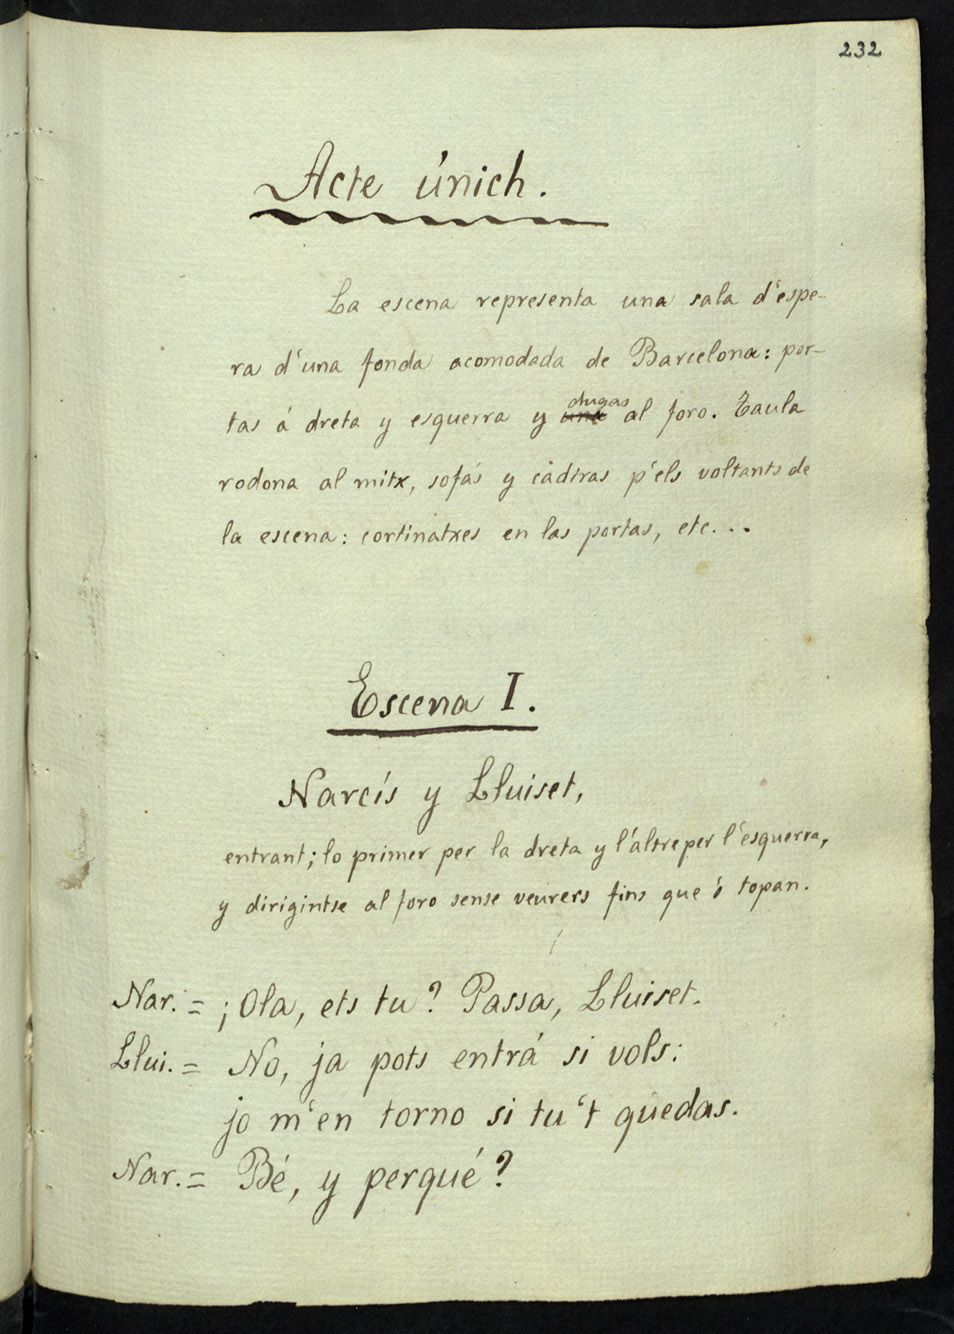 232
Acte únich.
La escena representa una sala d'espe-
ra d'una fonda acomodada de Barcelona: por-
tas á dreta y esquerra y dugas al foro. Taula
rodona al mitx, sofás y cadiras p'els voltants de
la escena: cortinatxes en las portas, etc...
Escena I.
Narcís y Lluiset,
entrant; lo primer per la dreta y l'altre per l'esquerra,
y dirigintse al foro sense veurers fins que s topan.
Nar. = ¡Ola, ets tu? Passa, Lluiset.
Llui. = No, ja pots entrá si vols:
jo m'en torno si tu't quedas.
Nar. = Bé, y perqué?